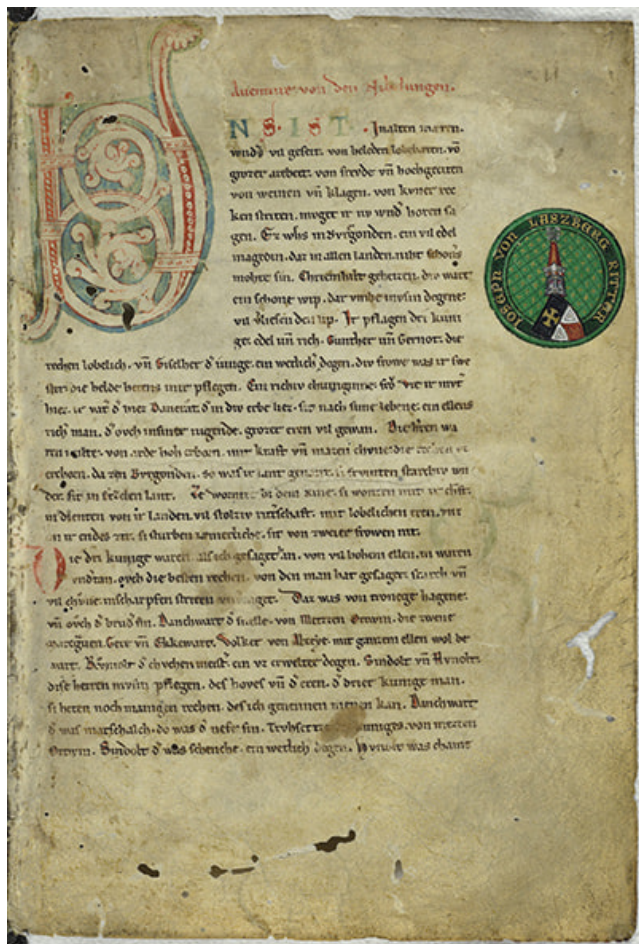 Aventiure von den Nibelungen.
NS IST. In alten mæren.
wnds vil geseit. von heleden lobebæren. vō
grozer arebeit. von frevde vn̄ hochgeciten
von weinen vn̄ klagen. von kvner rec
ken striten. mvget ir nv wnd horen sa
gen. Ez whs in Bvrgonden. ein vil edel
magedin. daz in allen landen. niht schoners
mohte sin. Chriemhilt geheizen. div wart
ein schone wip. dar vmbe mvsin degene
vil vliesen den lip. Ir pflagen dri kuni
ge. edel vn̄ rich. Gunther vn̄ Gernot. die
rechen lobelich. vn̄ Giselher d iunge. ein wetlich degen. div frowe was ir swe
ster. die helde hetens inir pflegen. Ein richiv chuniginne. frŏ Vte ir mvter
hiez. ir vater d hiez Dancrat. d in div erbe liez. sit nach sime lebene. ein ellens
rich man. d ovch in siner iugende. grozer eren vil gewan. Die herren wa
ren milte. von arde hoh erborn. mit kraft vn̄ mazen chvne. die rechen vz
erchorn. da zen Bvrgonden. so was ir lant genant. si frvmten starchiv wn
der. sit in Etzelen lant. Ze Wormze bi dem Rine. si wonten mit ir chraft.
in dienten von ir landen. vil stolziv ritterschaft. mit lobelichen eren. vnz
an ir endes zit. si sturben iæmerliche. sit von zweier frowen nit.
Die dri kunige waren. als ich gesaget han. von vil hohem ellen. in waren
vndertan. ovch die besten rechen. von den man hat gesaget. starch vn̄
vil chvne. in scharpfen striten vnverzaget. Daz was von Tronege Hagene.
vn̄ ovch d brud sin. Danchwart d snelle. von Metzzen Ortwin. die zwene
marcgraven. Gere vn̄ Ekkewart. Volker von Alzeye. mit ganzem ellen wol be
wart. Rvmolt d chvchen meist. ein vz erwelter degen. Sindolt vn̄ Hvnolt.
dise herren mvsin pflegen. des hoves vn̄ d eren. d drier kunige man.
si heten noch manigen rechen. des ich genennen nienen kan. Danchwart
d was marschalch. do was d nefe sin. Trvhsetze des kuniges. von Metzen
Ortwin. Sindolt d was schenche. ein wetlich degen. Hvnolt was chami
JOSEPH VON LASZBERG RITTER